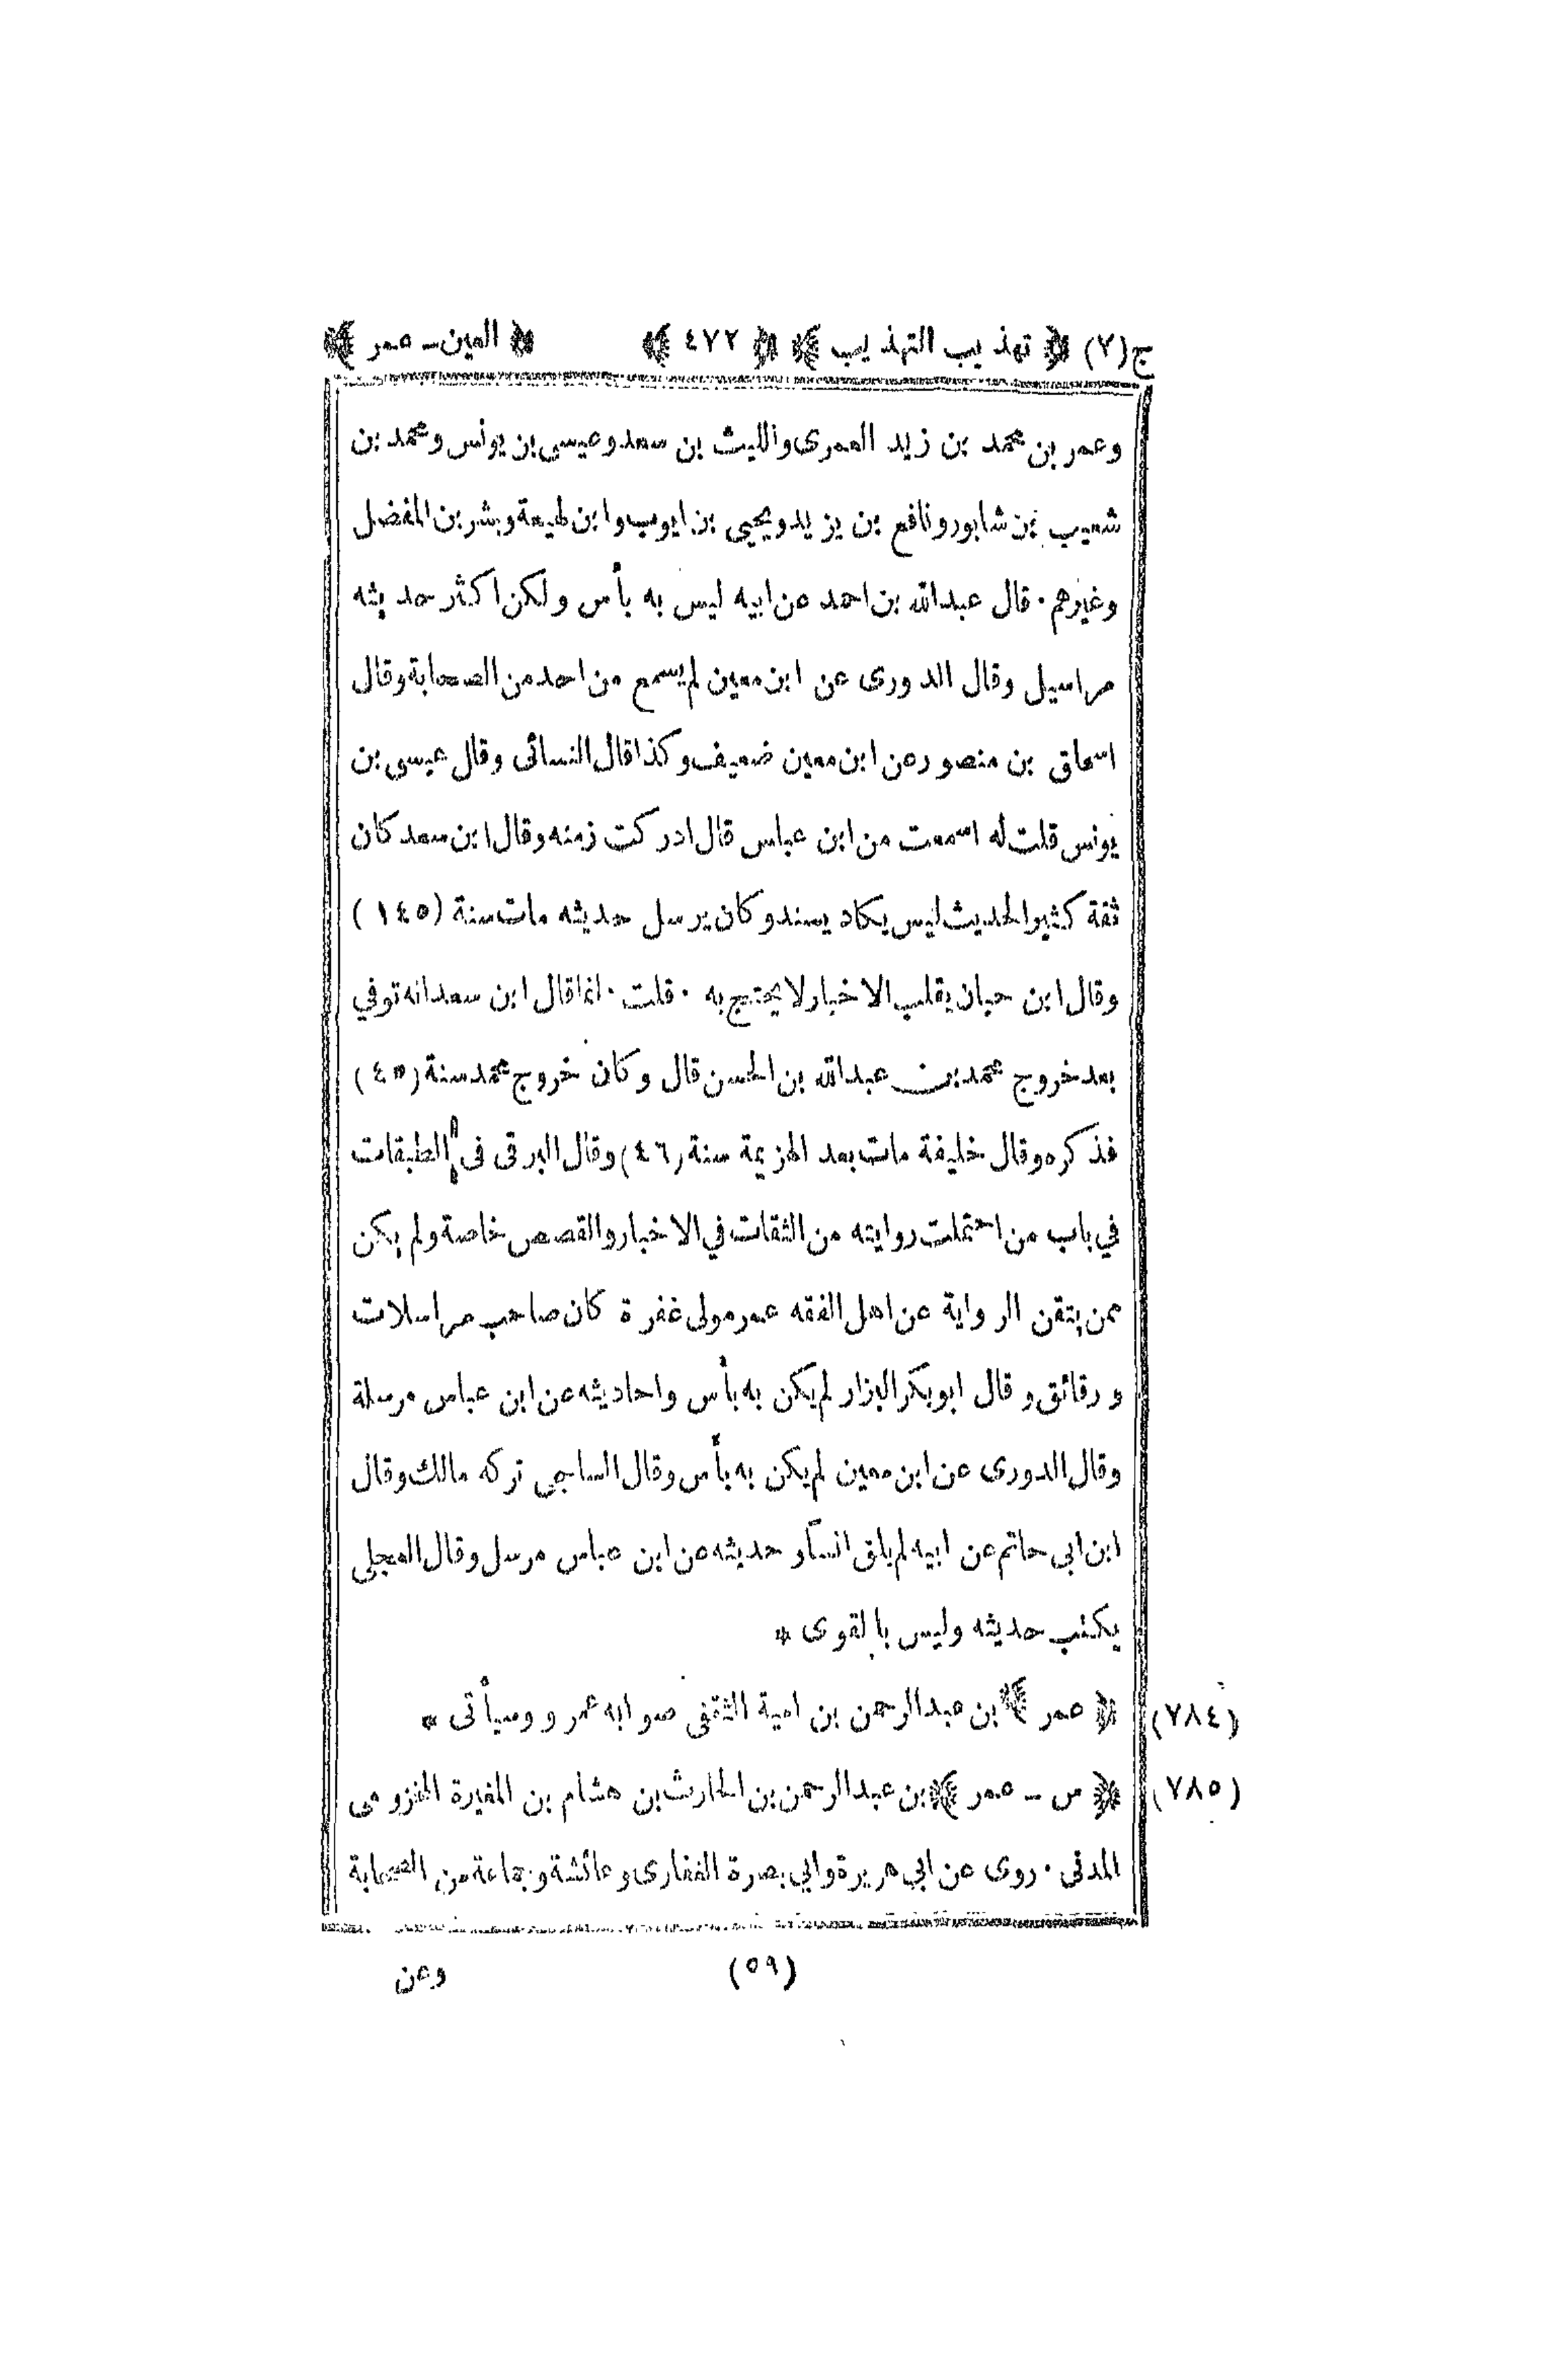 ج(٧) ﴿ تهذيب التهذيب ﴾ ﴿ ٤٧٢ ﴾ ﴿ العين - عمر ﴾
وعمر بن محمد بن زيد العمرى والليث بن سعد وعيسى بن يونس ومحمد بن
شعيب بن شابور ونافع بن يزيد ويحيى بن ايوب وابن لهيعة وبشر بن المفضل
وغيرهم · قال عبدالله بن احمد عن ابيه ليس به بأس ولكن اكثر حديثه
مراسيل وقال الدورى عن ابن معين لم يسمع من احد من الصحابة وقال
اسحاق بن منصور عن ابن معين ضعيف وكذا قال النسائى وقال عيسى بن
يونس قلت له اسمعت من ابن عباس قال ادركت زمنه وقال ابن سعد كان
ثقة كثير الحديث ليس يكاد يسند وكان يرسل حديثه مات سنة (١٤٥)
وقال ابن حبان يقلب الاخبار لا يحتج به · قلت · انما قال ابن سعد انه توفي
بعد خروج محمد بن عبدالله بن الحسن قال وكان خروج محمد سنة (٤٥)
فذكره وقال خليفة مات بعد الهزيمة سنة (٤٦) وقال البرقى فى الطبقات
في باب من احتملت روايته من الثقات في الاخبار والقصص خاصة ولم يكن
ممن يتقن الرواية عن اهل الفقه عمر مولى غفرة كان صاحب مراسلات
ورقائق وقال ابو بكر البزار لم يكن به بأس واحاديثه عن ابن عباس مرسلة
وقال الدورى عن ابن معين لم يكن به بأس وقال الساجى تركه مالك وقال
ابن ابى حاتم عن ابيه لم يلق انسا و حديثه عن ابن عباس مرسل وقال العجلى
يكتب حديثه وليس بالقوى *
(٧٨٤) ﴿ عمر ﴾ بن عبدالرحمن بن امية الثقفى صوابه عمرو وسيأتى *
(٧٨٥) ﴿ س - عمر ﴾ بن عبدالرحمن بن الحارث بن هشام بن المغيرة المخزومى
المدنى · روى عن ابي هريرة وابي بصرة الغفارى وعائشة وجماعة من الصحابة
(٥٩) وعن